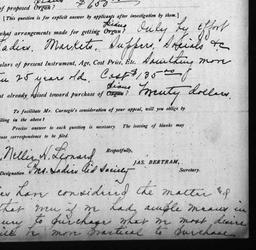 of proposed Organ? $600
[This question is for explicit answer by applicants after investigation by them.]
What arrangements made for getting Organ? Piano Only by effort
Ladies. Markets, Suppers, Socials &c
of present Instrument, Age, Cost Price, Etc. Something more
25 years old. Cost $135
already raised toward purchase of Organ? Piano Twenty dollars
To facilitate Mr. Carnegie's consideration of your appeal, will you oblige by
filling in the above?
Precise answer to each question is necessary. The leaving of blanks may
correspondence to be filed.
Respectfully,
Nellie H. Leonard
JAS. BERTRAM,
Designation Ladies Aid Society Secretary.
have considered the matter of
that even if we had ample means in
to purchase what we most desire
be more practical to purchase